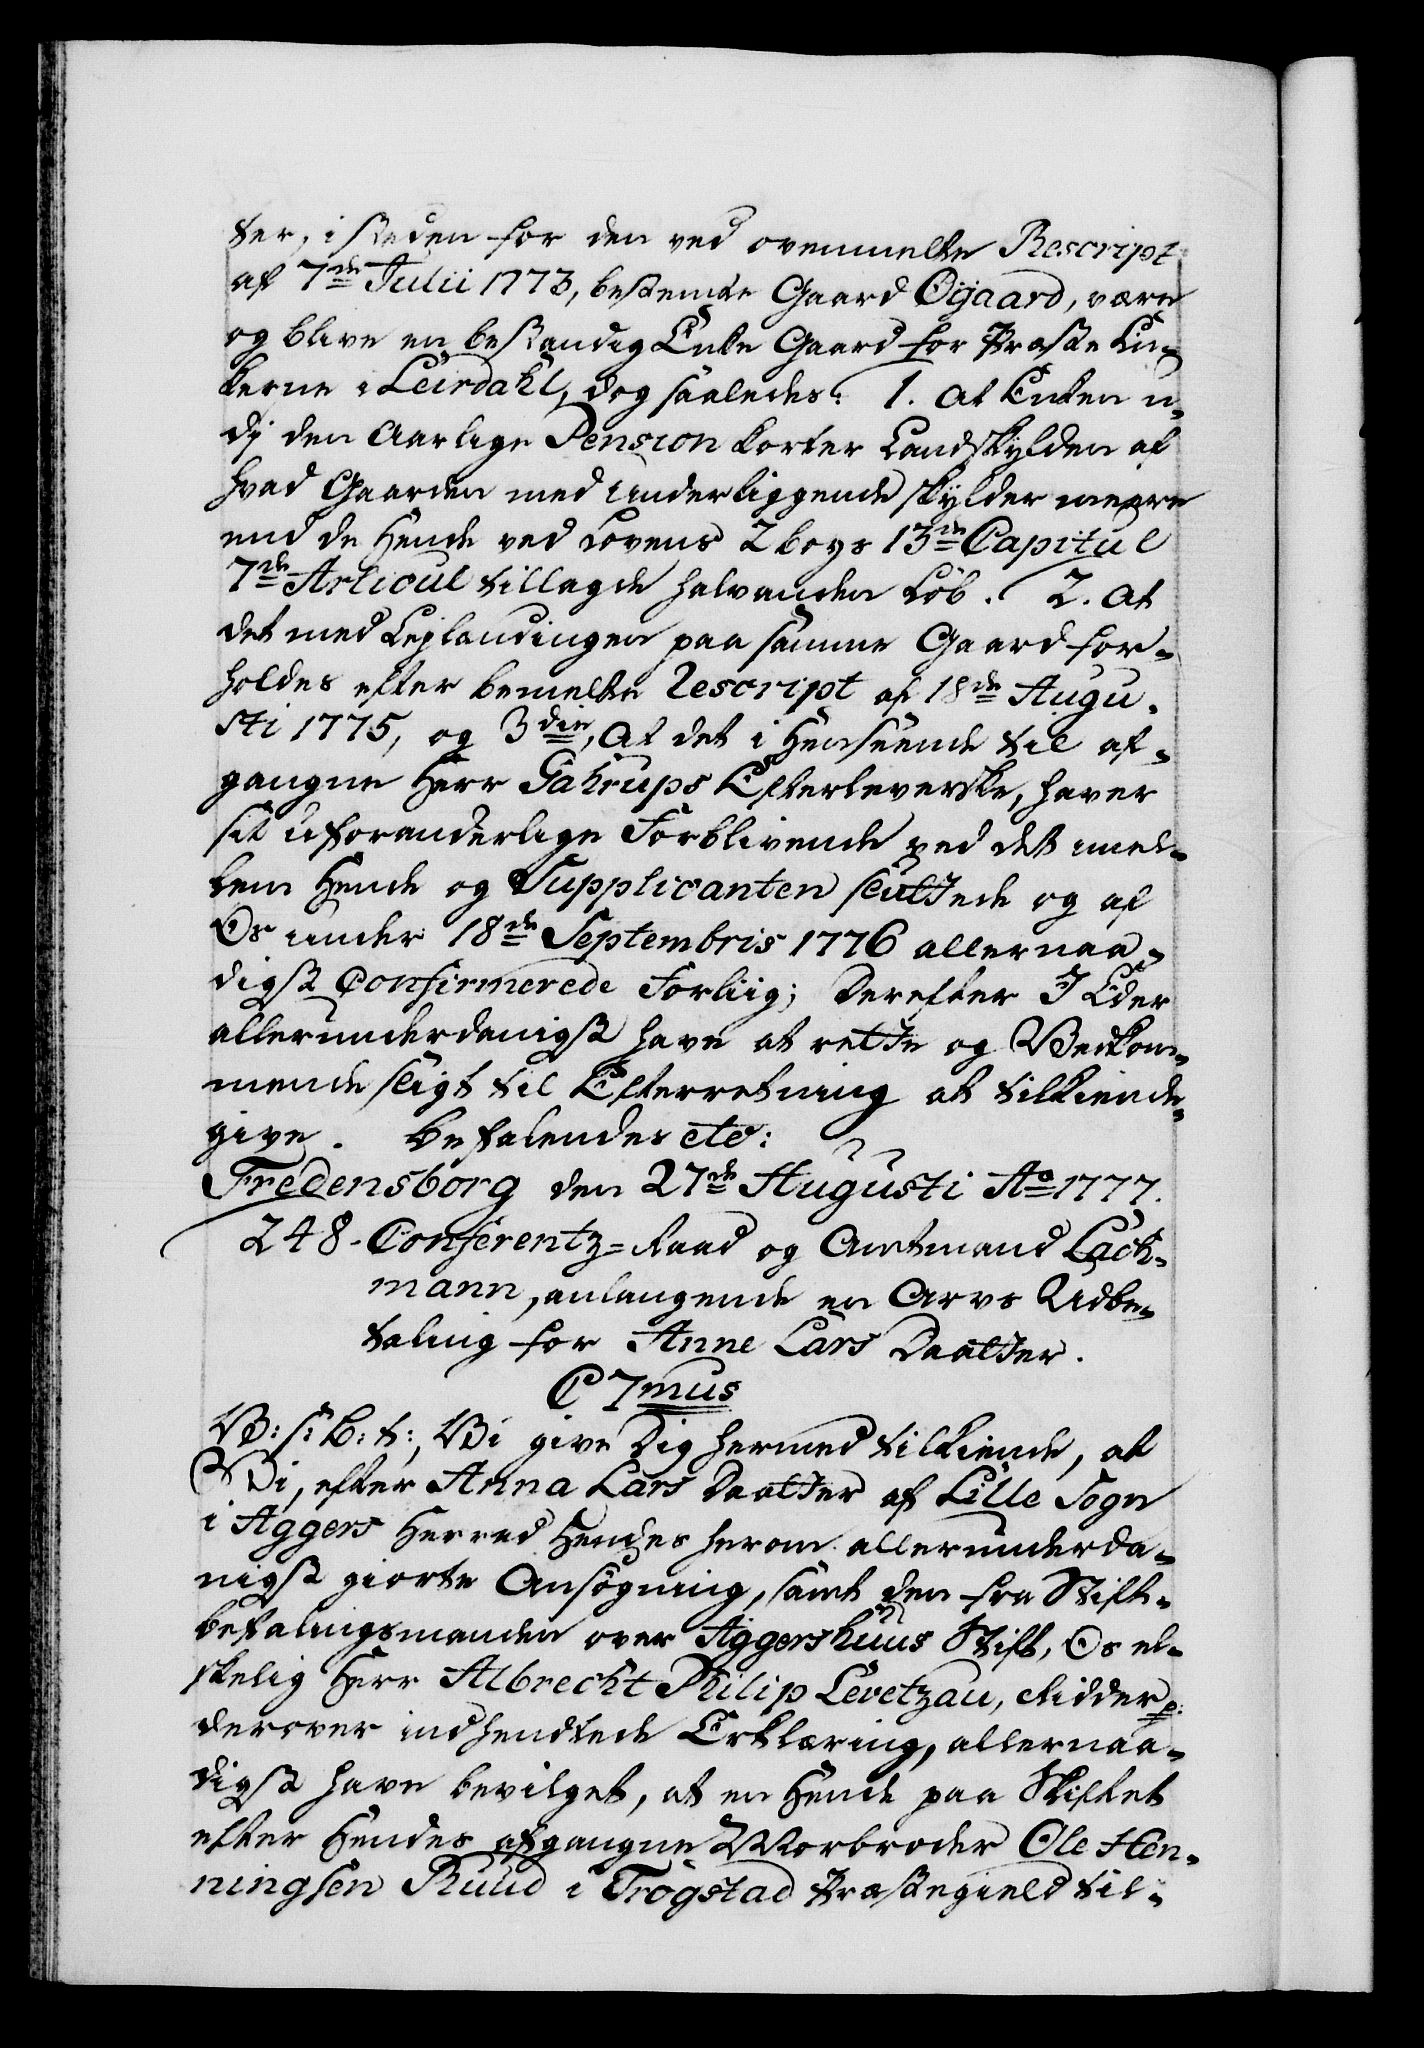 ter, i Steden for den ved ovenmelte Rescript
af 7de Julii 1773, bestemte Gaard Øigaard, være
og blive en bestandig Enke Gaard for Præste En-
kerne i Leirdahl, dog saaledes: 1. At Enken u-
di den Aarlige Pension korter Landskylden af
hvad Gaarden med Underliggende skylder meere
end de Hende ved Lovens 2 bogs 13de Capitul
7de Articul tillagde halvanden Løb. 2. At
det med Leylendingen paa samme Gaard for-
holdes efter bemelte Rescript af 18de Augu-
sti 1775, og 3die, At det i Henseende til af-
gangne Herr Gahrups Efterleverske, haver
sit uforanderlige Forblivende ved det mel-
lem Hende og Supplicanten sluttede og af
Os under 18de Septembris 1776 allernaa-
digst Confirmerede Forliig; Derefter I Eder
allerunderdanigst have at rette og Vedkom-
mende sligt til Efterretning at tilkiende-
give. Befalendes etc:
Fredensborg den 27de Augusti Ao 1777.
248. Conferentz-Raad og Amtmand Lach-
mann, anlangende en Arvs Udbe-
taling for Anne Lars Daatter.
C 7mus
V: s: b: t:, Vi give Dig hermed tilkiende, at
Vi, efter Anna Lars Daatter af Lille Sogn
i Aggers Herred Hendes herom allerunderda-
nigst giorte Ansøgning, samt den fra Stift-
befalingsmanden over Aggershuus Stift, Os el-
skelig Herr Albrecht Philip Levetzau, Ridder p:
derover indhendtede Erklæring, allernaa-
digst have bevilget, at en Hende paa Skiftet
efter Hendes afgangne Morbroder Ole Hen-
ningsen Ruud i Trøgstad Præstegield til-